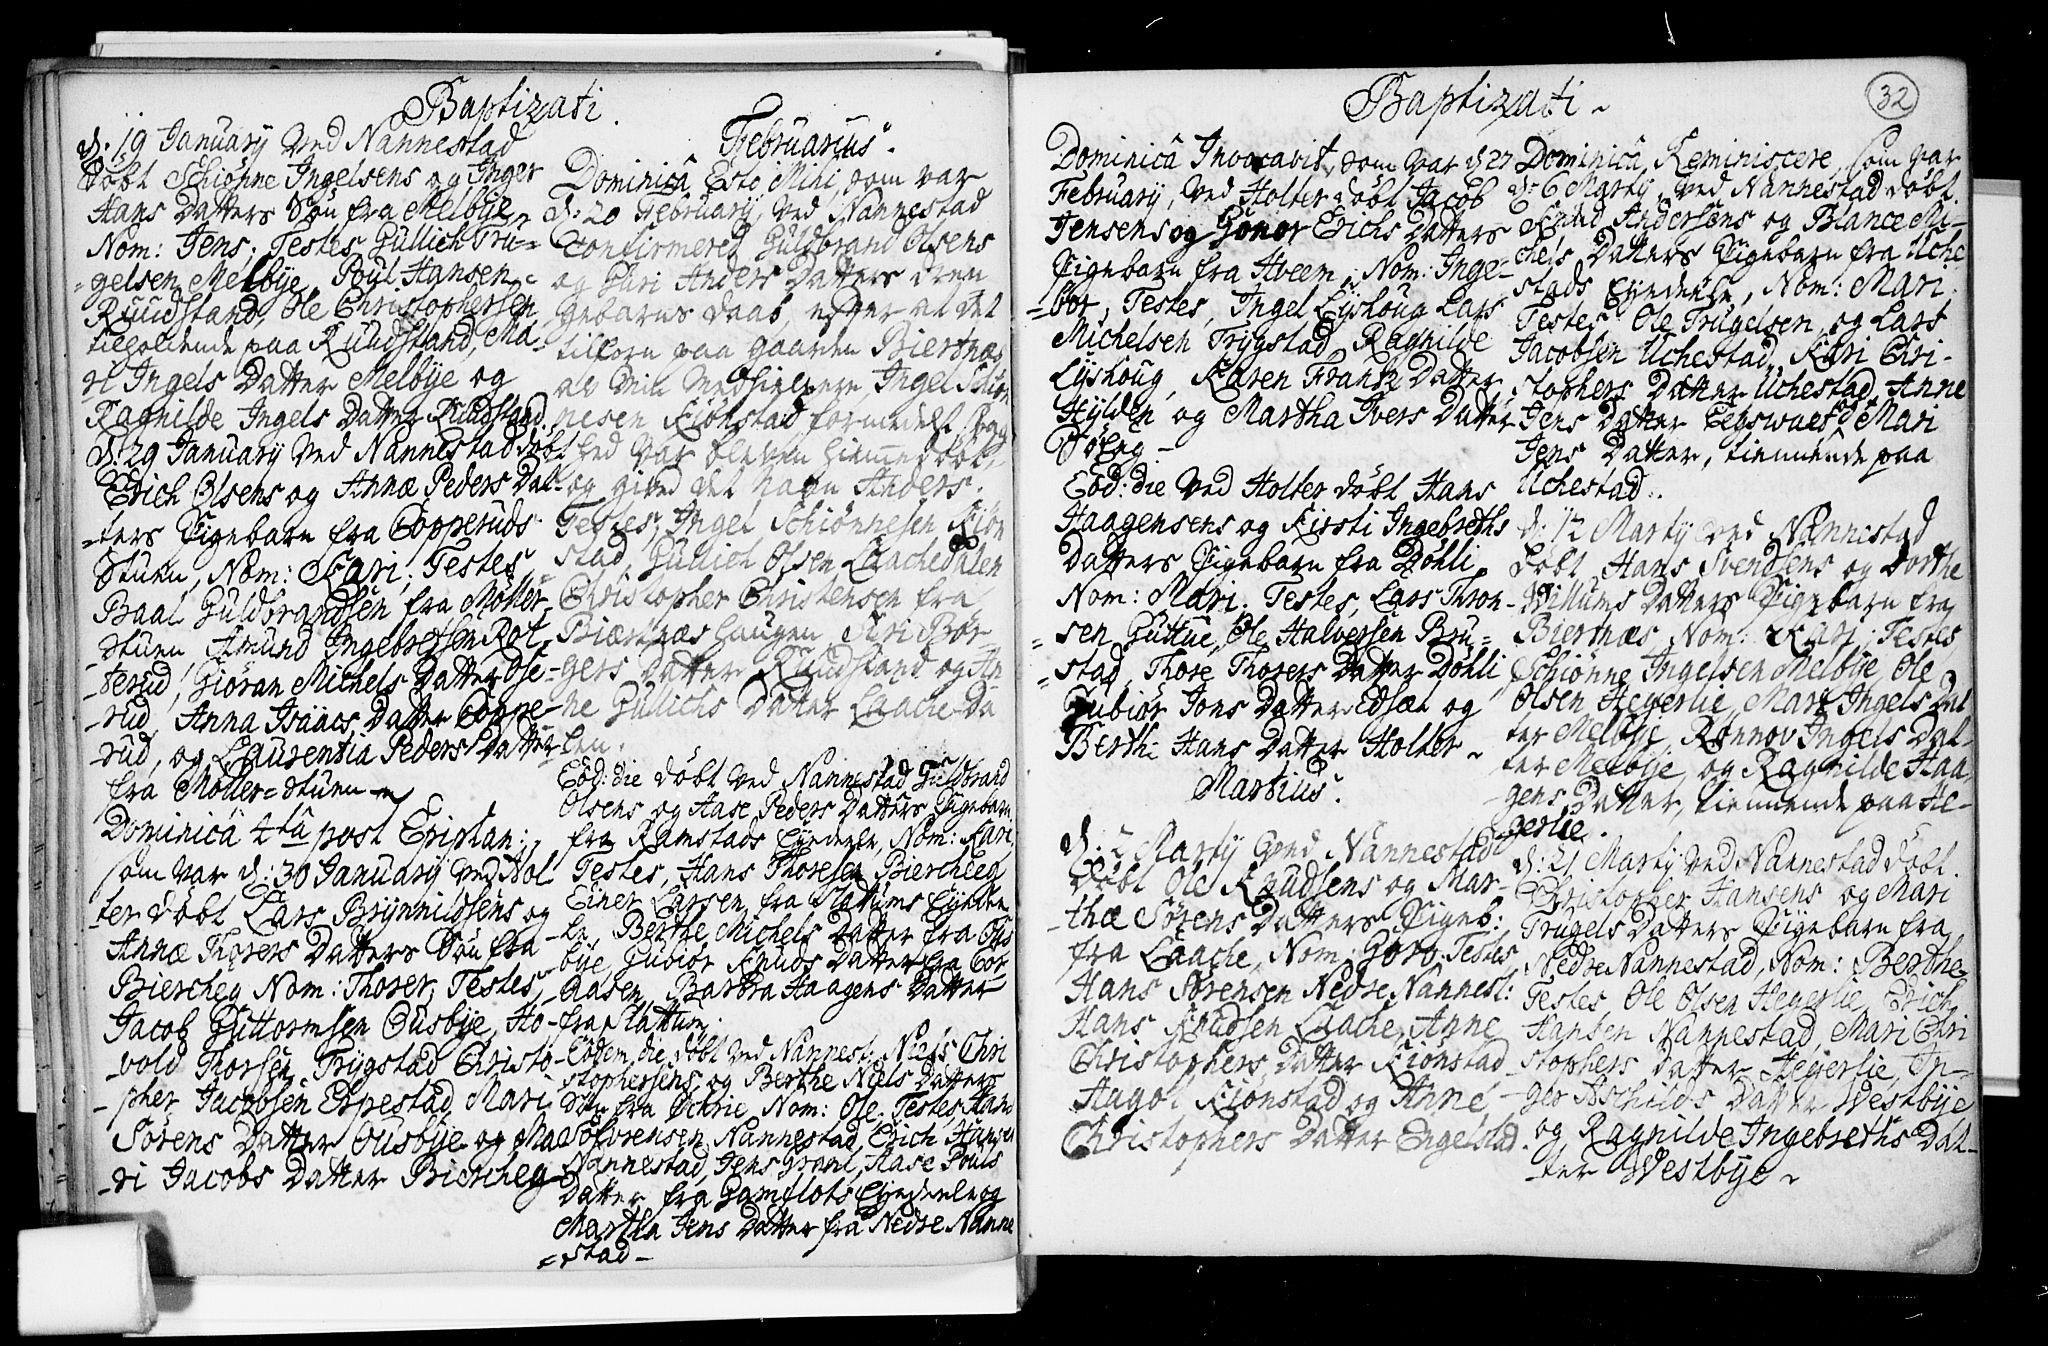 Baptizati.
d. 19 January ved Nannestad
döbt Schiönne Ingelsens og Inger
Hans Datters Sön fra Melbÿe,
Nom: Jens, Testes Gullich Tru-
-gelsen Melbÿe, Poul Hansen
Ruudstand, Ole Christophersen
tilholdende paa Ruudstand, Ma-
ri Ingels Datter Melbÿe og
Ragnilde Ingels Datter Ruudstand.
d. 29 January ved Nannestad döbt
Erich Olsens og Annæ Peders Dat-
-ters Pigebarn fra Copperuds
Stuen, Nom: Kari, Testes
Baal Guldbrandsen fra Möller
Stuen Amund Ingebretsen Rot-
-terud, Giöran Michels Datter Ose-
-rud, Anna Isaacs Datter Coppe-
rud, og Laurentia Peders Datter
fra Möller-Stuen
Dominicâ 4ta post Epiphan:,
som var d: 30 January ved Hol
ter döbt Lars Brÿnnildsens og
Annæ Thorers Datters Sön fra
Biercheg Nom: Thorer, Testes,
Jacob Guttormsen Ousbÿe, Ho-
vold Thorsen Trÿgstad Christo-
-pher Jacobsen Eppestad, Mari
Sörens Datter Ousbÿe og Ma
-ri Jacobs Datter Biercheg
Februarius.
Dominicâ Esto Mihi, som var
d: 20 February, ved Nannestad
Confirmered Guldbrand Olsens
og Kari Anders Datters dren
gebarns daab, efter at det
tilforn paa gaarden Biertnæs
av min medhielpere Ingel Schiön
nesen Kiönstad formedelst svag
hed var bleven hiemmedöbt,
og gived det nafn Anders.
Testes, Ingel Schiönnesen Kiön
stad, Gullich Olsen Laachedalen
Christopher Christensen fra
Biærtnæs haugen, Siri Bör-
gers Datter Ruudstand og An
ne Gullichs Datter Laache Da
len.
Eod: die döbt ved Nannestad Guldbrand
Olsens og Aase Peders Datters Pigebarn
fra Ramstads Eÿedeele, Nom: Kari,
Testes, Hans Thoresen Biercheeg
Einer Larsen fra Slattums Eÿedee
le, Berthe Michels Datter fra Ous
bÿe, Gubiör Knuds Datter fra Cor
Aasen, Barbra Haagens Datter
fra Slattum.
Eodem die döbt ved Nannest: Niels Chri
stophersens og Berthe Niels Datters
Sön fra Öchrie, Nom: Ole, Testes, Hans
Sörensen Nannestad, Erich Hansen
Nannestad, Jens Grani, Aase Pouls
Datter fra Gamslots Eÿedeele og
Martha Jens Datter fra Nedre Nanne
-stad-
32
Baptizati
Dominicâ Invocavit, som var d 27
February, ved Holter döbt Jacob
Jensens og Gunor Erichs Datters
Pigebarn fra Hveem, Nom: Inge-
-bor, Testes, Ingel Lÿshoug Lars
Michelsen Trÿgstad Ragnilde
Lÿshoug, Karen Frantz Datter
Hÿlden og Martha Ivers Datter
Eod: die ved Holter döbt Hans
Haagensens og Kirsti Ingebreths
Datters Pigebarn fra Döhli
Nom: Mari. Testes, Lars Thron-
-sen Guttue, Ole Halversen Bru-
-stad, Thore Thorers Datter Döhli
Gubiör Jons Datter Edsæt og
Berthe Hans Datter Holter
Martius.
d. 2 Marty ved Nannestad
döbt Ole Knudsens og Mar-
-thæ Sörens Datters Pigeb:
fra Laache, Nom: Goro, Testes
Hans Sörensen Nedre Nannest:
Hans Knudsen Laache, Anne
Christophers Datter Kiönstad
Aagot Kiönstad og Anne
Christophers Datter Engelstad.
Dominicâ Reminiscere, som var
d: 6 Marty, ved Nannestad döbt
Knud Andersens og Blance Mi-
chels Datters Pigebarn fra Uche
stads Eÿedeele, Nom: Mari.
Testes Ole Trugelsen, og Lars
Jacobsen Uchestad, Kari Chri-
stophers Datter Uchestad, Anne
Jens Datter og Mari
Jens Datter, tiennende paa
Uchestad.
d. 12 Marty ved Nannestad
döbt Hans Svendsens og Dorthe
Willums Datters Pigebarn fra
Biertnæs, Nom: Kari, Testes
Schiönne Ingelsen Melbÿe, Ole
Olsen Hegerlie, Mari Ingels Dat
ter Melbÿe, Rönnov Ingels Dat-
ter Melbÿe, og Ragnilde Haa
gens Datter, tiennende paa He-
gerlie.
d: 21 Marty ved Nannestad döbt
Christopher Hansens og Mari
Trugels Datters Pigebarn fra
Nedre Nannestad, Nom: Berthe
Testes Ole Olsen Hegerlie, Erich
Hansen Nannestad, Mari Chri
stophers Datter Hegerlie, In-
ger Aschilds Datter Westbÿe
og Ragnilde Ingebreths Dat-
-ter Westbÿe